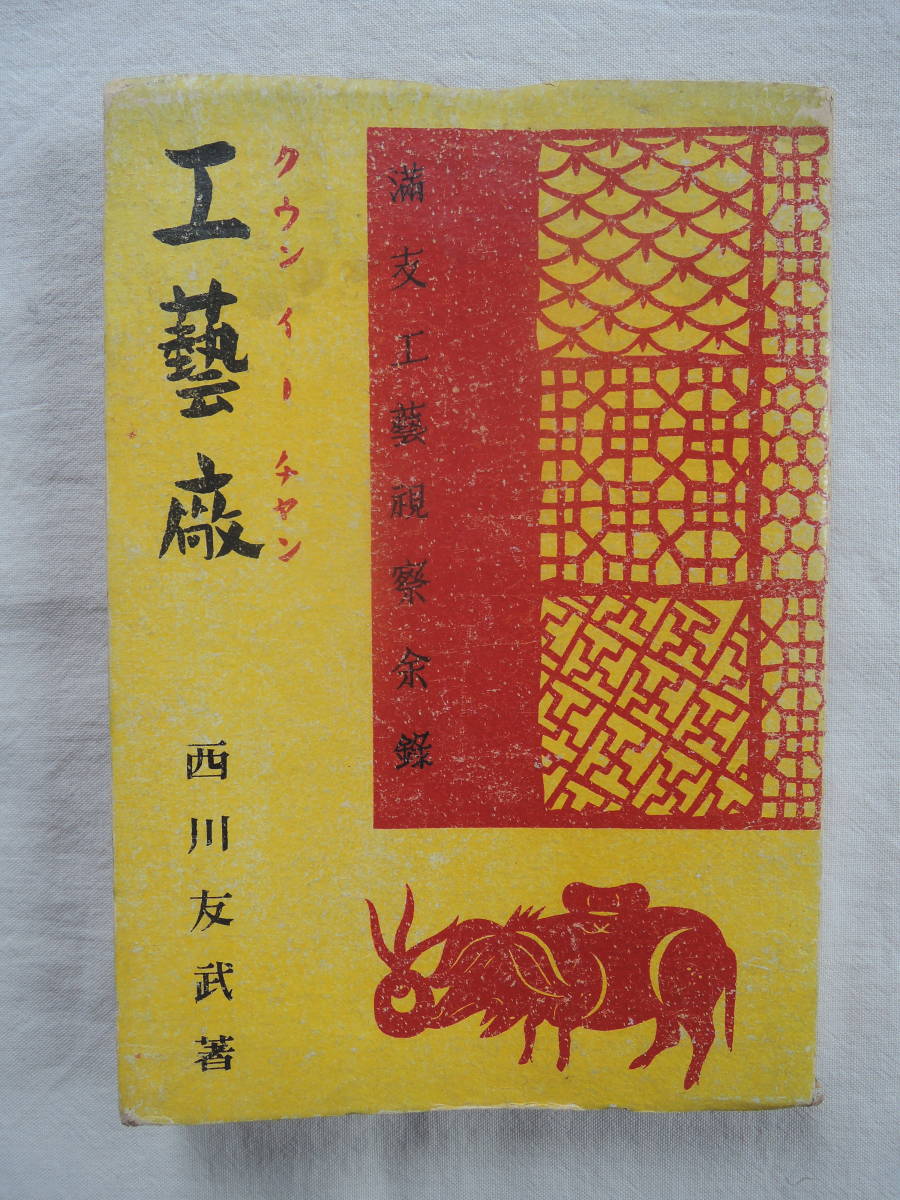 満支工藝視察余録
クウンイーチヤン
工藝廠
西川友武著